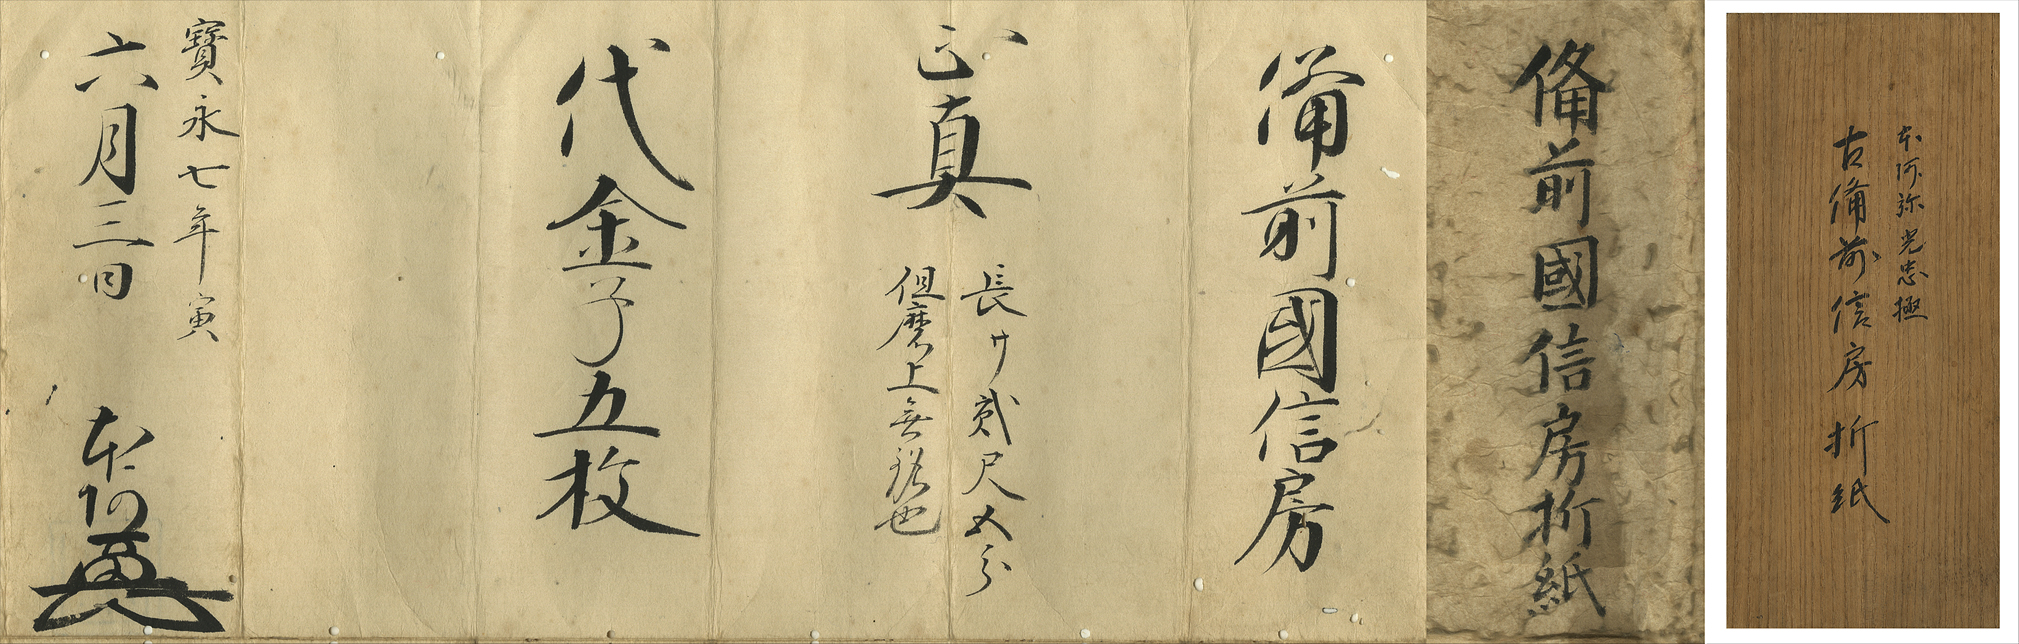 本阿弥光忠極
古備前信房折紙
備前國信房折紙
備前國信房
正真
長サ貳尺五分
但磨上無銘也
代金子五枚
寶永七年寅
六月三日
本阿